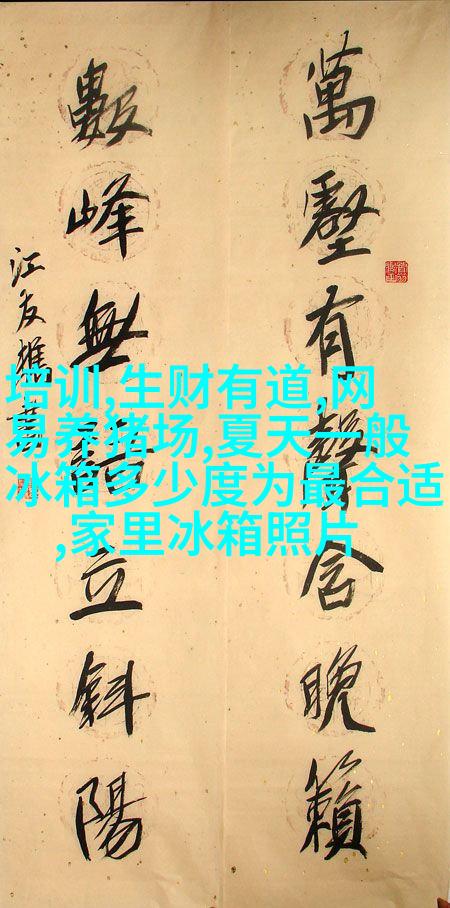 萬壑有聲含晚籟
數峰無語立斜陽
江友樵書
培训,生财有道,网
易养猪场,夏天一般
冰箱多少度为最合适
,家里冰箱照片